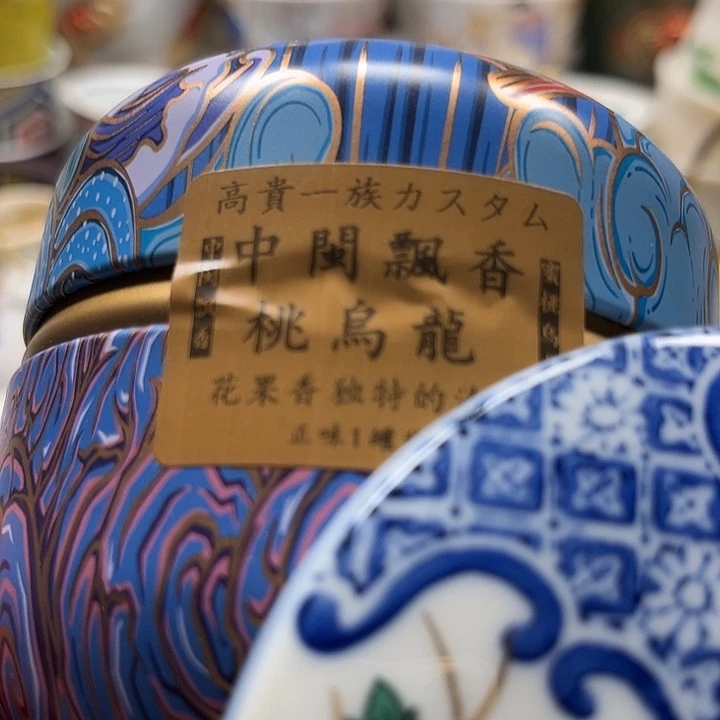 高貴一族カスタム
中閩飄香
桃烏龍
花果香独特的
正味1罐